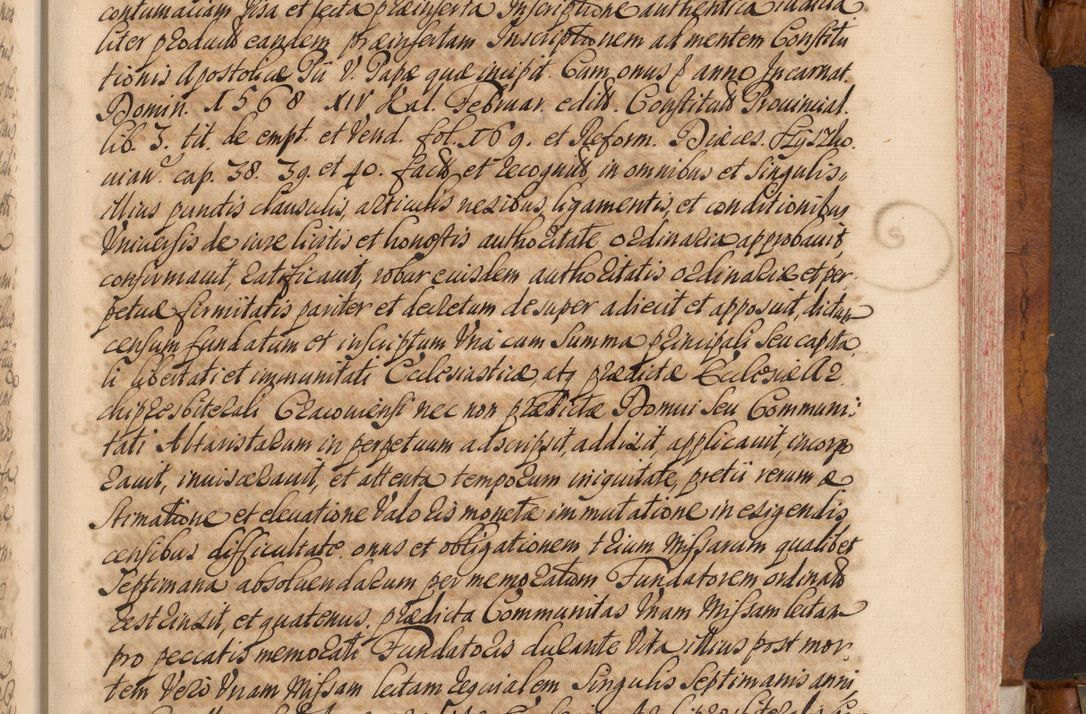 contumaciam Visa et lecta præinserta Inscriptione authentica iudicia
liter producta eandem præinsertam Inscriptionem ad mentem Constitu
tionis Apostolicæ Pii V. Papæ quæ incipit. Cum onus ꝑ anno Incarnat.
Domin. 1568 XIV Kal. Februar. edita. Constitut Provincial.
lib. 3. tit. de empt. et Vend. fol. 169. et Reform. Diæces.
uian. cap. 38. 39. et 40. facta et recognita in omnibus et Singulis
illius punctis clausulis, articulis nexibus ligamentis, et conditionibus
Vniuersis de iure licitis et honestis authoritate ordinaria approbauit
confirmauit, ratificauit, robur eiusdem authoritatis ordinariæ et per
petuæ firmitatis pariter et decretum desuper adiecit et apposuit, dictum
censum fundatum et inscriptum Vna cum Summa principali seu capita
li libertati et immunitati Ecclesiasticæ, atq prædictæ Ecclesiæ Ar
chipresbiterali Cracouiensi nec non prædictæ Domui seu Communi
tati Altaristarum in perpetuum adscripsit, addixit, applicauit, incorpo
rauit, inuiscerauit, et attenta temporum iniquitate, pretii rerum æ
stimatione et eleuatione Valoris monetæ immutatione in exigendis
censibus difficultate onus et obligationem trium Missarum qualibet
Septimana absoluendarum per memoratum Fundatorem ordinata
restrinxit, et quatenus. prædicta Communitas Vnam Missam lectam
pro peccatis memorati Fundatoris durante Vita illius post mor
tem Vero Vnam Missam lectam requialem Singulis Septimanis anni,